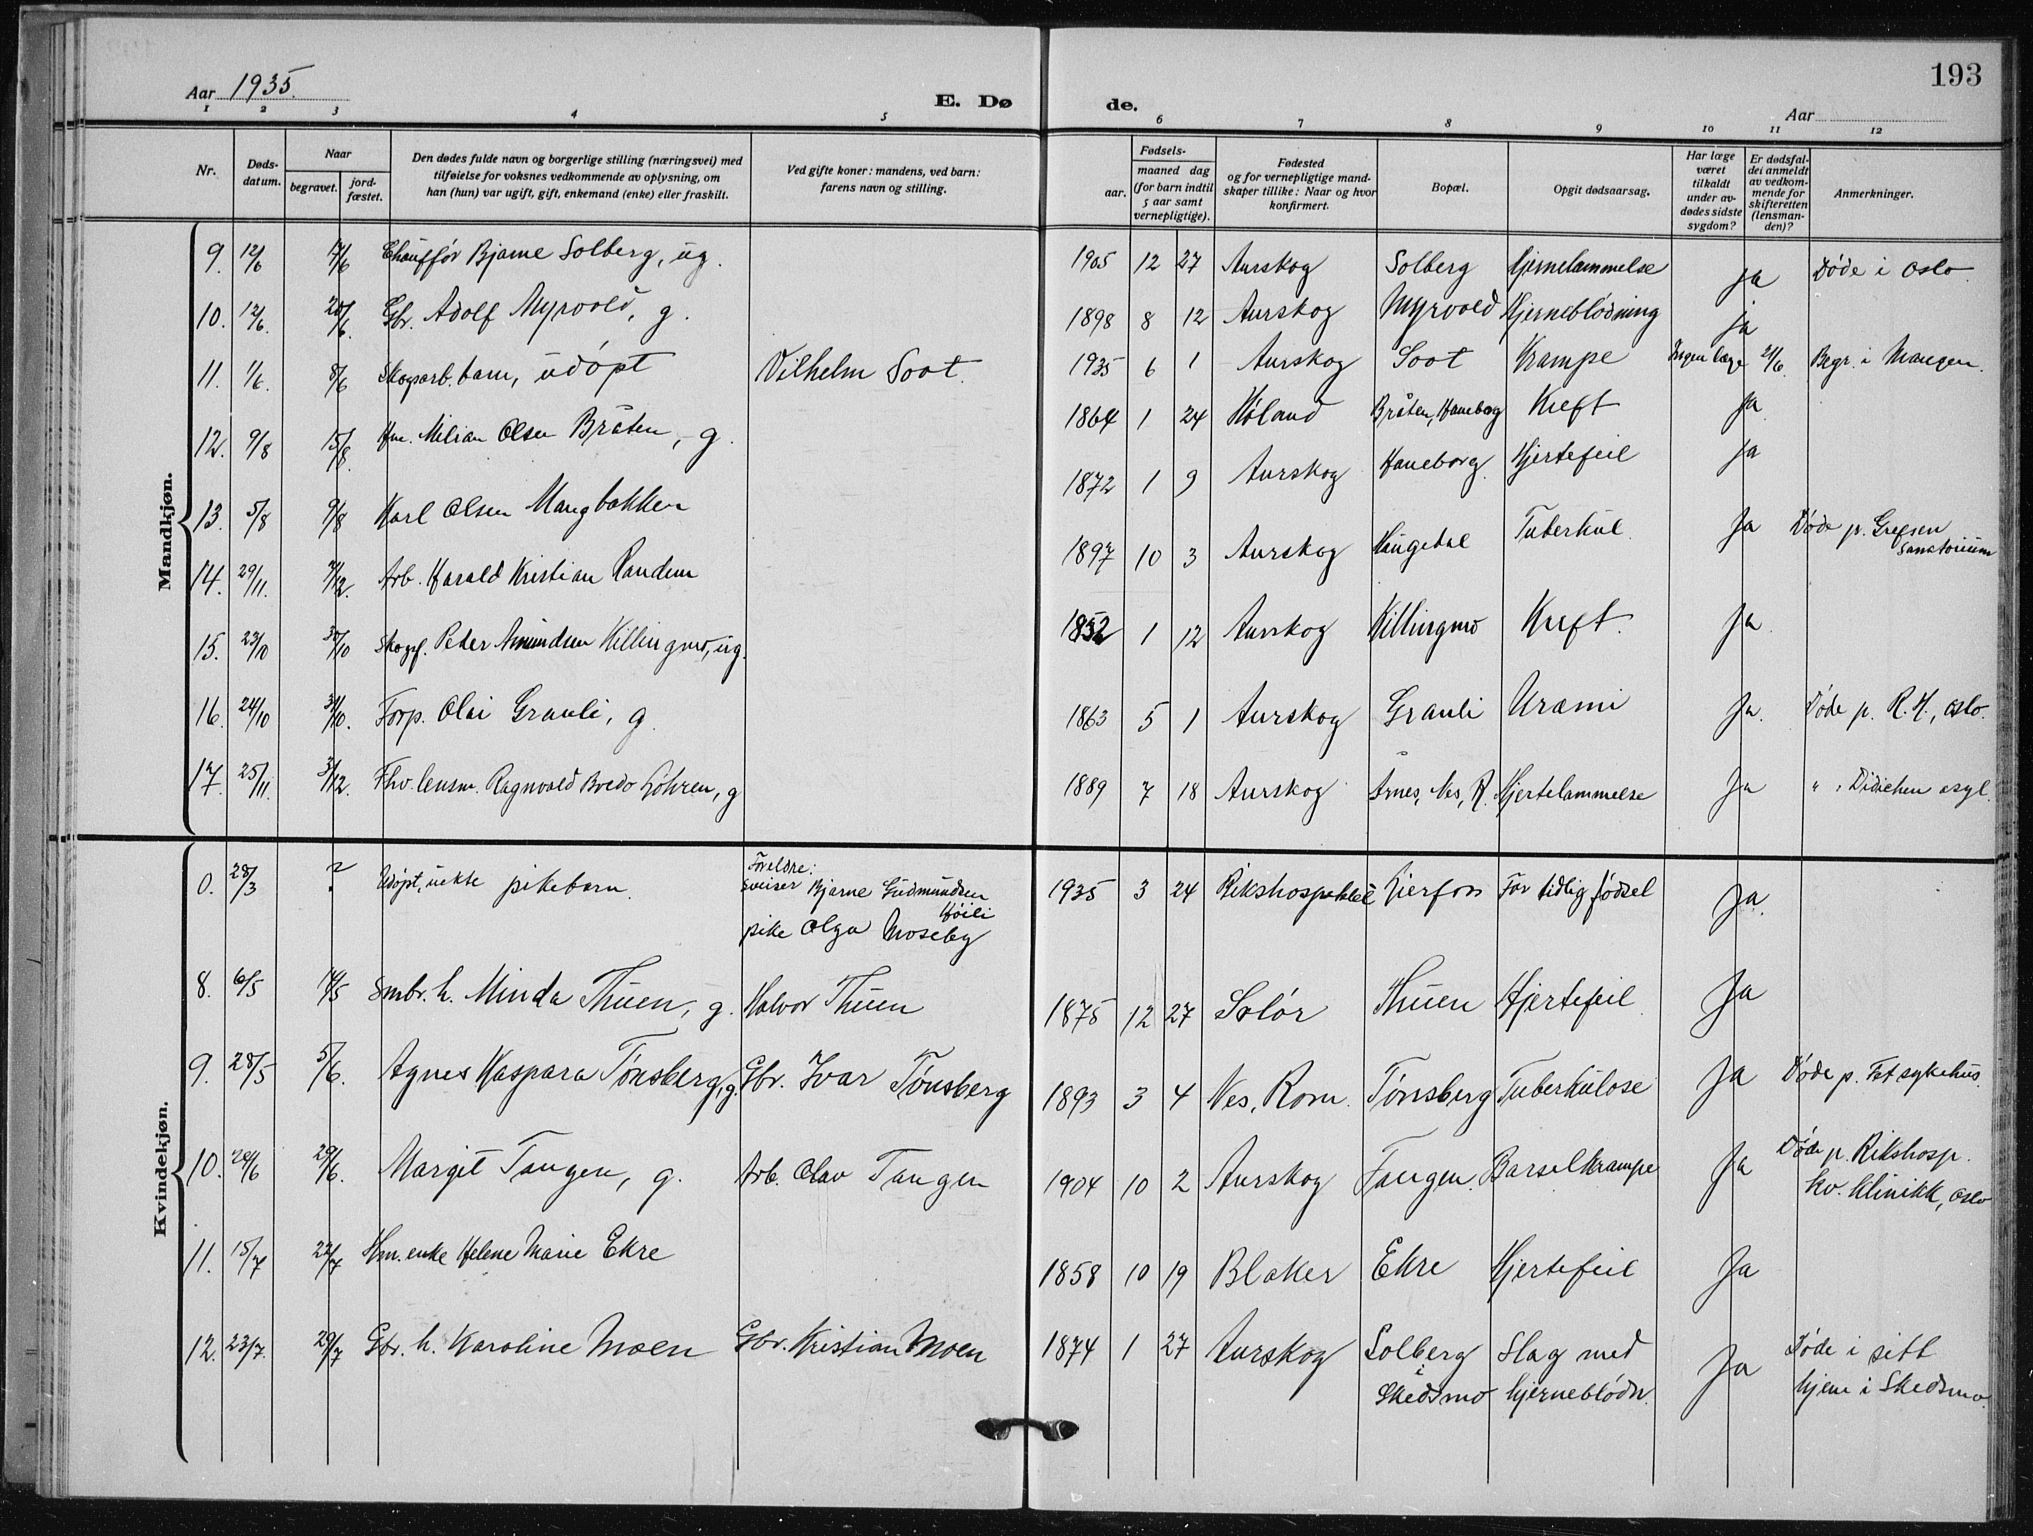 193
Aar 1935.
E. Dø de.
Aar
1 2 3 4 5 6 7 8 9 10 11 12
Nr. Døds-datum. Naar begravet. jord-fæstet. Den dødes fulde navn og borgerlige stilling (næringsvei) med tilføielse for voksnes vedkommende av oplysning, om han (hun) var ugift, gift, enkemand (enke) eller fraskilt. Ved gifte koner: mandens, ved barn: farens navn og stilling. Fødsels- aar. maaned dag (for barn indtil 5 aar samt vernepligtige). Fødested og for vernepligtige mand-skaper tillike: Naar og hvor konfirmert. Bopæl. Opgit dødsaarsag. Har læge været tilkaldt under av-dødes sidste sygdom? Er dødsfal-det anmeldt av vedkom-mende for skifteretten (lensman-den)? Anmerkninger.
Mandkjøn.
9. 12/6 17/6 Chauffør Bjarne Solberg, ug. 1905 12 27 Aurskog Solberg Hjernelammelse Ja Døde i Oslo
10. 12/6. 20/6 Gbr. Adolf Myrvold, g. 1898 8 12 Aurskog Myrvold Hjerneblødning ja
11. 1/6. 8/6 Skogsarb. barn, udøpt Vilhelm Soot. 1935 6 1 Aurskog Soot Krampe Ingen læge 21/6. Begr. i Mangen.
12. 9/8 15/8 Hm. Milian Olsen Bråten, g. 1864 1 24 Høland Bråten, Haneborg Kreft Ja
13. 5/8 9/8 Karl Olsen Mangbakken 1872 1 9 Aurskog Haneborg. Hjertefeil Ja
14. 29/11. 7/12. Arb. Harald Kristian Randem 1897 10 3 Aurskog Haugedal Tuberkul. Ja Døde p. Grefsen Sanatorium
15. 23/10 30/10 Skogf. Peder Amundsen Killingmo, ug. 1852 1 12 Aurskog Killingmo Kreft. Ja
16. 24/10 31/10. Forp. Olai Grauli, g. 1863 5 1 Aurskog Grauli Uræmi Ja. Døde p. R.H., Oslo.
17. 25/11. 3/12. Fhv. lensm. Ragnvald Bredo Løhren, g 1889 7 18 Aurskog Årnes, Nes, R. Hjertelammelse Ja " , Didichen asyl.
Kvindekjøn.
0. 28/3 ? Udøpt, uekte pikebarn. Foreldre: sveiser Bjarne Gudmundsen Høili pike Olga Moseby 1935 3 24 Rikshospitalet Lierfoss For tidlig fødsel Ja.
8. 6/5 14/5 Smbr. h. Minda Thuen, g. Halvor Thuen 1875 12 27 Solør Thuen Hjertefeil Ja
9. 28/5 5/6. Agnes Kaspara Tønsberg, g. Gbr. Ivar Tønsberg 1893 3 4 Nes, Rom. Tønsberg Tuberkulose Ja Døde p. Fet sykehus.
10. 24/6 29/6. Margit Tangen, g. Arb. Olav Tangen 1904 10 2 Aurskog Tangen. Barselkrampe Ja Døde p. Rikshosp. kv. klinikk, Oslo
11. 15/7 22/7 Hm. enke Helene Marie Ekre 1858 10 19 Blaker Ekre Hjertefeil Ja
12. 23/7. 29/7 Gbr. h. Karoline Moen Gbr. Kristian Moen 1874 1 27 Aurskog Solberg i Skedsmo Slag med hjerneblødn. Ja Døde i sitt hjem i Skedsmo.